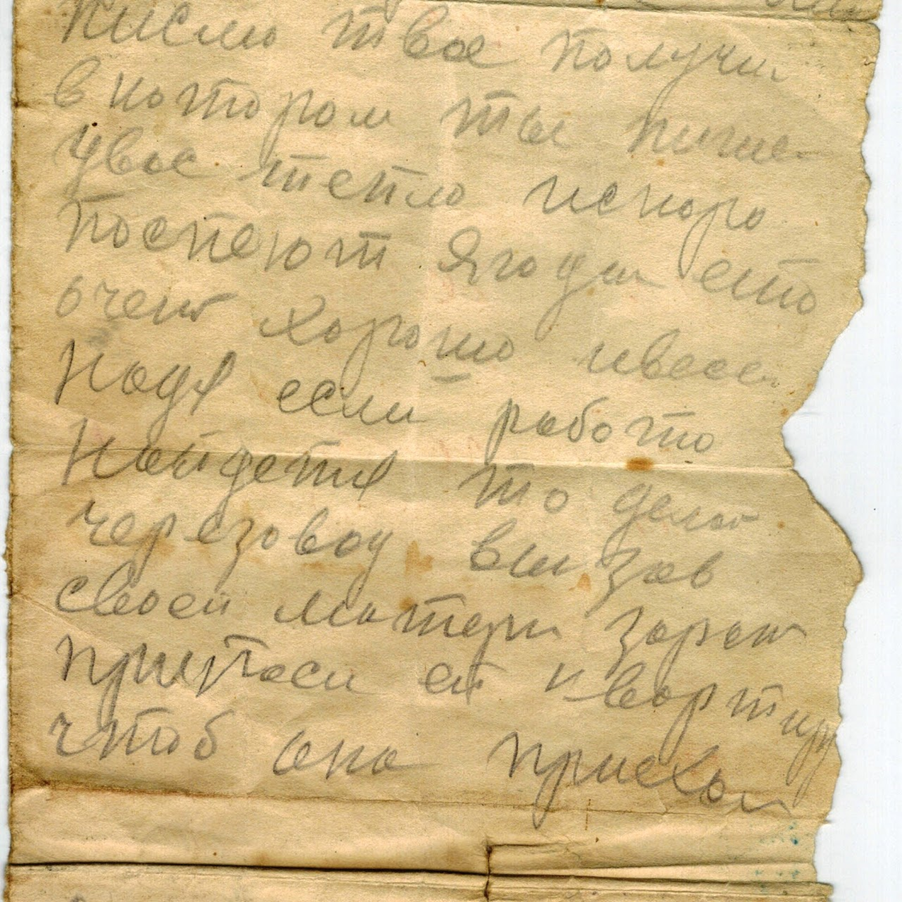 писмо твое получи
в котором ты пише
увас тепло искоро
поспеют Ягоды ето
очен хорошо ивесе
Надя если работо
Найдетця то делай
через завод вызов
своей матери заран
припаси ей квортиру
чтоб она приехол